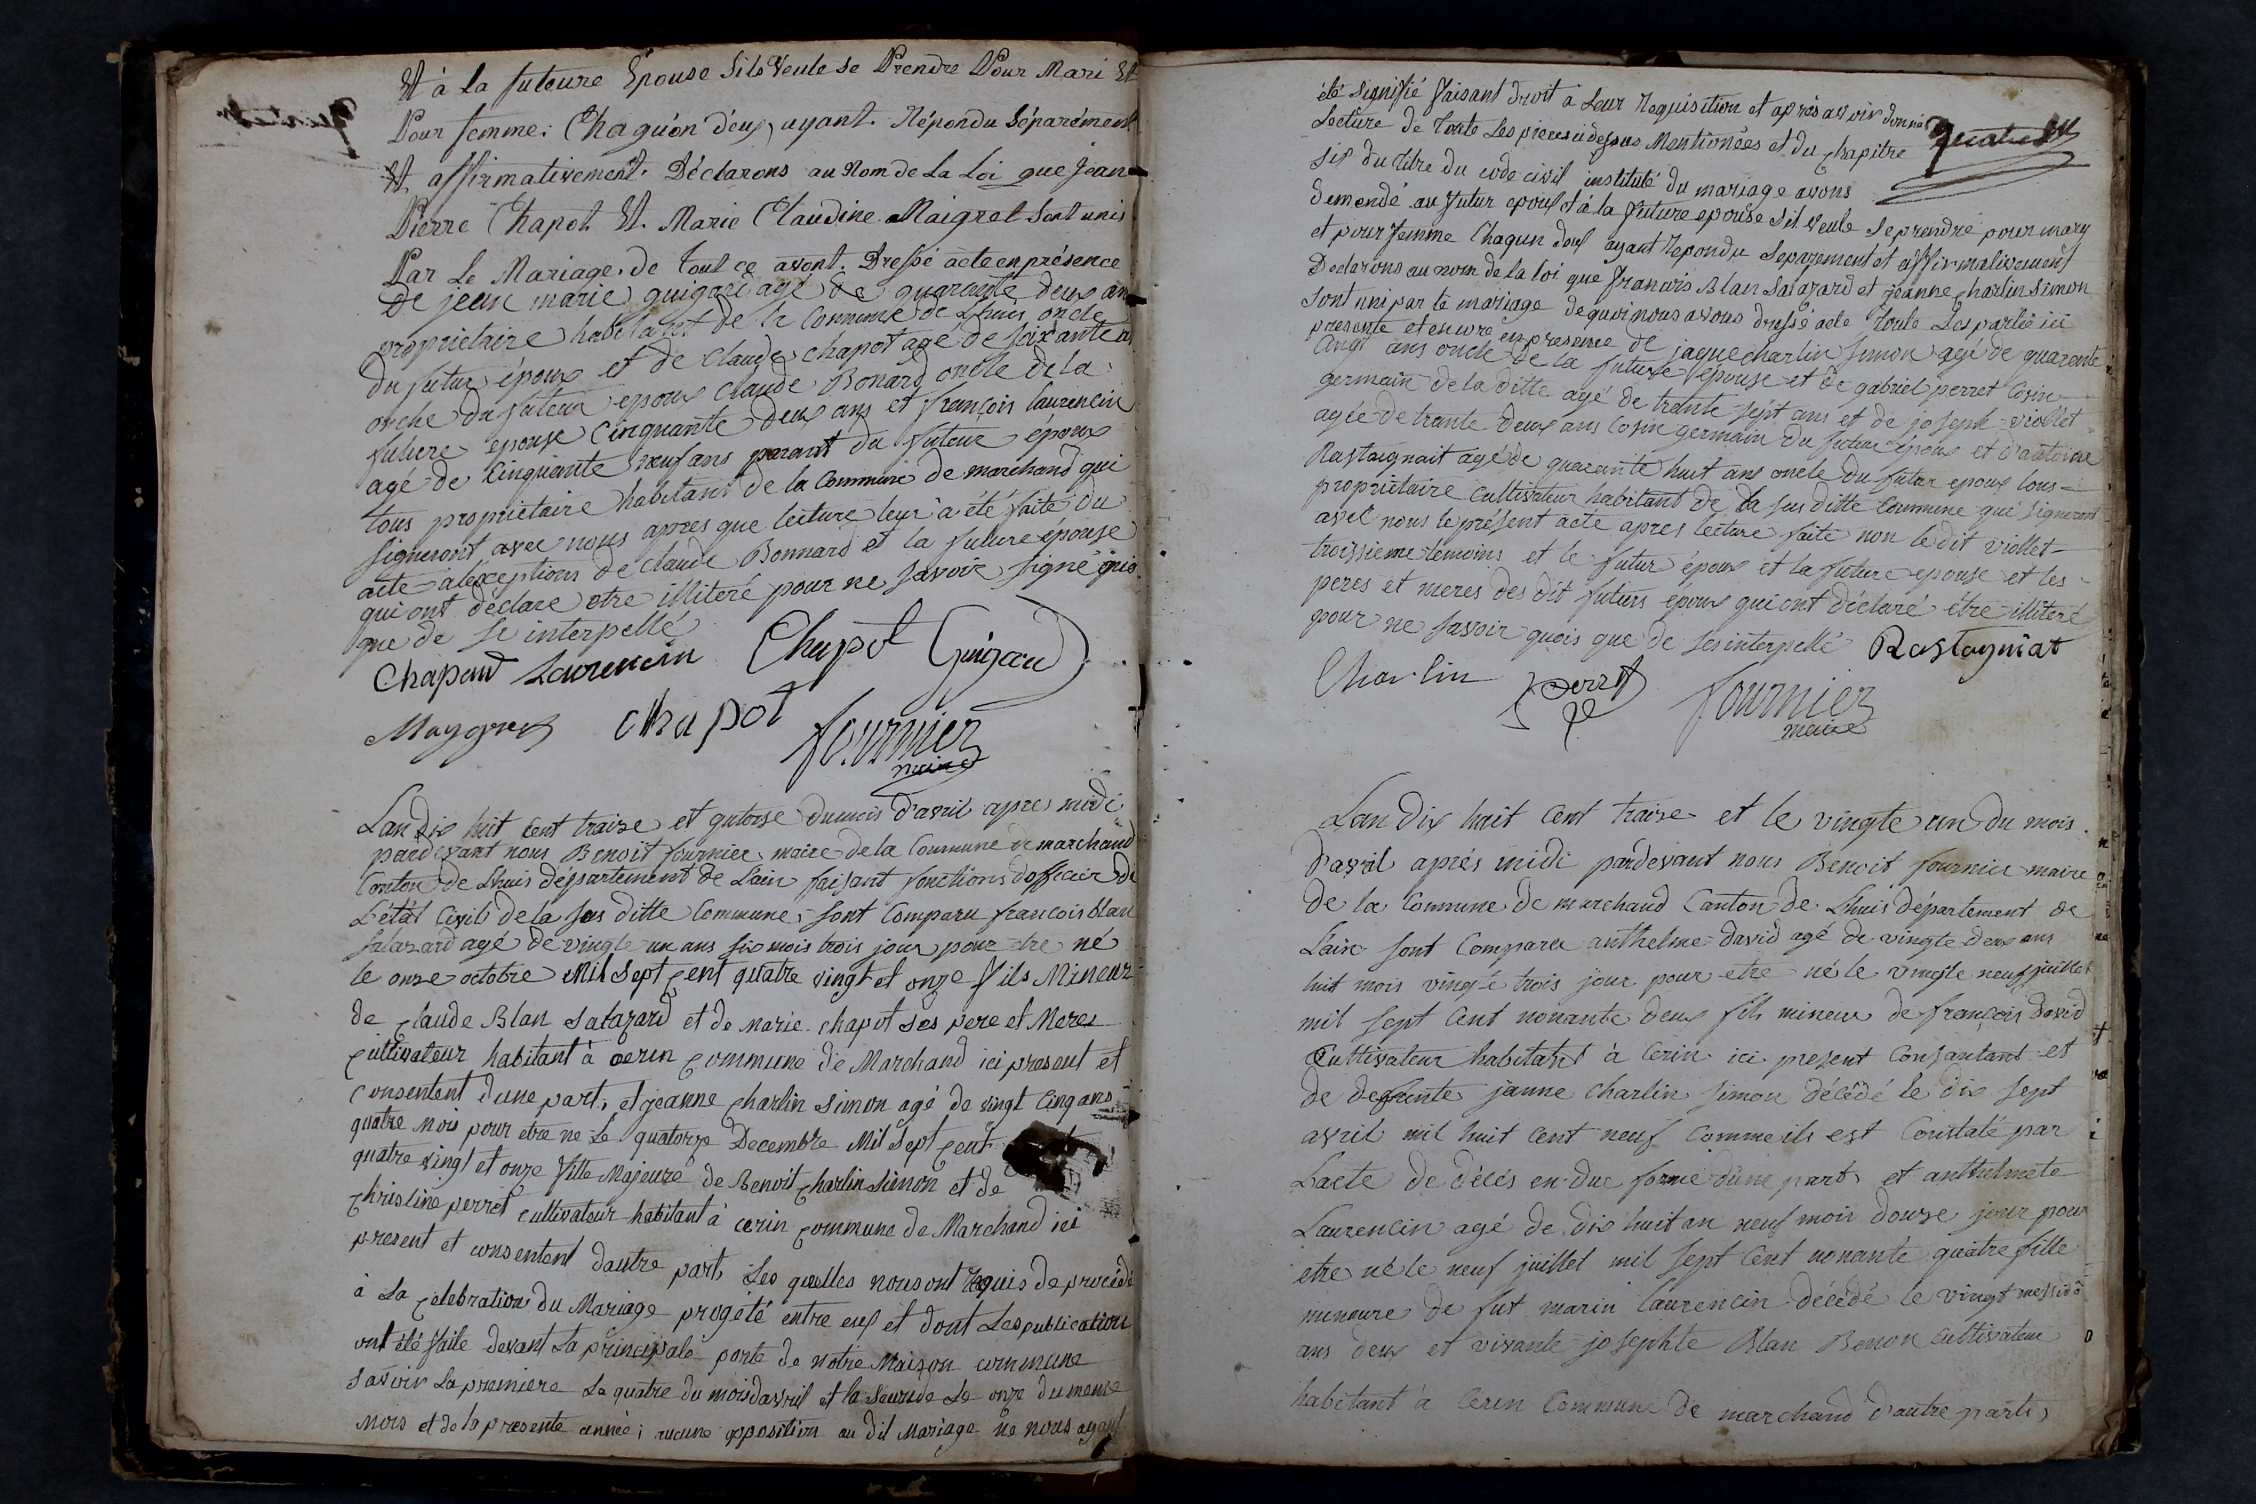 Et à la future Epouse Sils Veule se Prendre Pour Mari Et
Pour femme; Chaqu'on d'eux, ayant. Répondu Séparément
Et affirmativement. Déclarons au Nom de La Loi que Jean
Pierre Chapot Et. Marie Claudine Maigret Sont unis
Par Le Mariage. de tout ce avont. Dressé acte en présence
De jean marie guigard agé de quarante deux an
propriétaire habitant de la Commune de Lhuis oncle
du futur époux et de Claude chapot agé de soixante
oncle du futeur epoux claude Bonard oncle de la
future epouse cinquante deux ans et françois laurencin
agé de cinquante neuf ans parant du futeur époux
tous propriétaire habitans de la Commune de marchand qui
signeront avec nous apres que lecture leur à été faite du
acte aléxceptions de claude Bonnard et la future épouse
qui ont déclare etre illiteré pour ne savoir signé quoi
que de se interpellé
Chapaut Laurencin Chapot Guigard
Maygret chapot fournier
maire
Lan dix huit cent traize et qutorse dumois d'avril apres midi
pardevant nous Benoit fournier maire de la Commune de marchand
Conton de Lhuis département de Lain faisant fonctions dofficier de
L'etat Civile de la sus ditte Commune, sont Comparu francois blan
salazard agé de vingte un ans six mois trois jour pour etre né
le onze octobre Mil sept cent quatre vingt et onze fils Mineur
de Claude Blan Salazard et de Marie chapot ses pere et Meres
Cultivateur habitant à cerin Commune de Marchand ici present et
Consentent dune part, et jeanne Charlin Simon agé de vingt cinq ans
quatre Mois pour etre ne Le quatorze Decembre Mil Sept Cent
quatre vingt et onze fille Majeure de Benoit Charlin Simon et de
Christine perret Cultivateur habitant à cerin Commune de Marchand ici
present et consentent dautre part, Les quelles nous ont Requis de procédé
à La Celebration du Mariage progété entre eux et dont Les publication
ont été faite devant La principale porte de notre Maison commune
savoir La premiere Le quatre du mois davril et la Seconde Le onze du meme
Mois et de la presente année; aucune opposition au dit Mariage ne nous ayant
été Signifié faisant droit à Leur Requisition et après avoir donné
Lecture de toute Les pieces cidessus Mentionées et du Chapitre
six du titre du code civil institulé du mariage avons
demendé au futur epoux et à la future epouse s'il veule se prendre pour mary
et pour femme Chaqun deux ayant Repondu Separement et affirmativement
Declarons au nom de la loi que francois Blan Salazard et jeanne Charlin Simon
sont uni par le mariage de quoi nous avons dressé acte toute Les partie ici
presente et encore en presence de jaque charlin simon agé de quarente
cinqt ans oncle de la future epouse et de gabriel perret Cosin
germain de la ditte agé de trante sept ans et de joseph viollet
agée de trante deux ans Cosin germain du futur époux et d'antoine
Rastaignait agé de quarante huit ans oncle du futur epoux tous
propriétaire cultivateur habitant de la sus ditte Commune qui signeront
avec nous le présent acte apres lecture faite non le dit viollet
troissieme témoins et le futur époux et la future epouse et les
peres et meres des dit futurs epoux qui ont déclaré être illiteré
pour ne savoir quois que de ses interpellé Rastagniat
Charlin perret fournier
maire
Lan Dix huit Cent traize et le vingte un du mois
D'avril aprés midi pardevant nous Benoit fournier maire
De la Commune De marchand Canton De Lhuis département de
Lain sont Comparu anthelme david agé de vingte deux ans
huit mois vingte trois jour pour etre né le vingte neuf juillet
mil sept Cent nonante deux fils mineur de françois David
Cultivateur habitant à Cerin ici present Consantant et
de defunte janne Charlin simon décédé le dix sept
avril mil huit Cent neuf Comme ils est Constaté par
Lacte de décés en due forme d'une part et anthelmete
Laurencin agé de dix huit an neuf mois douze jour pour
etre né le neuf juillet mil sept Cent nonante quatre fille
mineure de fut marin laurencin décédé le vingt messido
ans deux et vivante josephte Blan Benon Cultivateur
habitant à Cerin Commune de marchand d'autre parts,